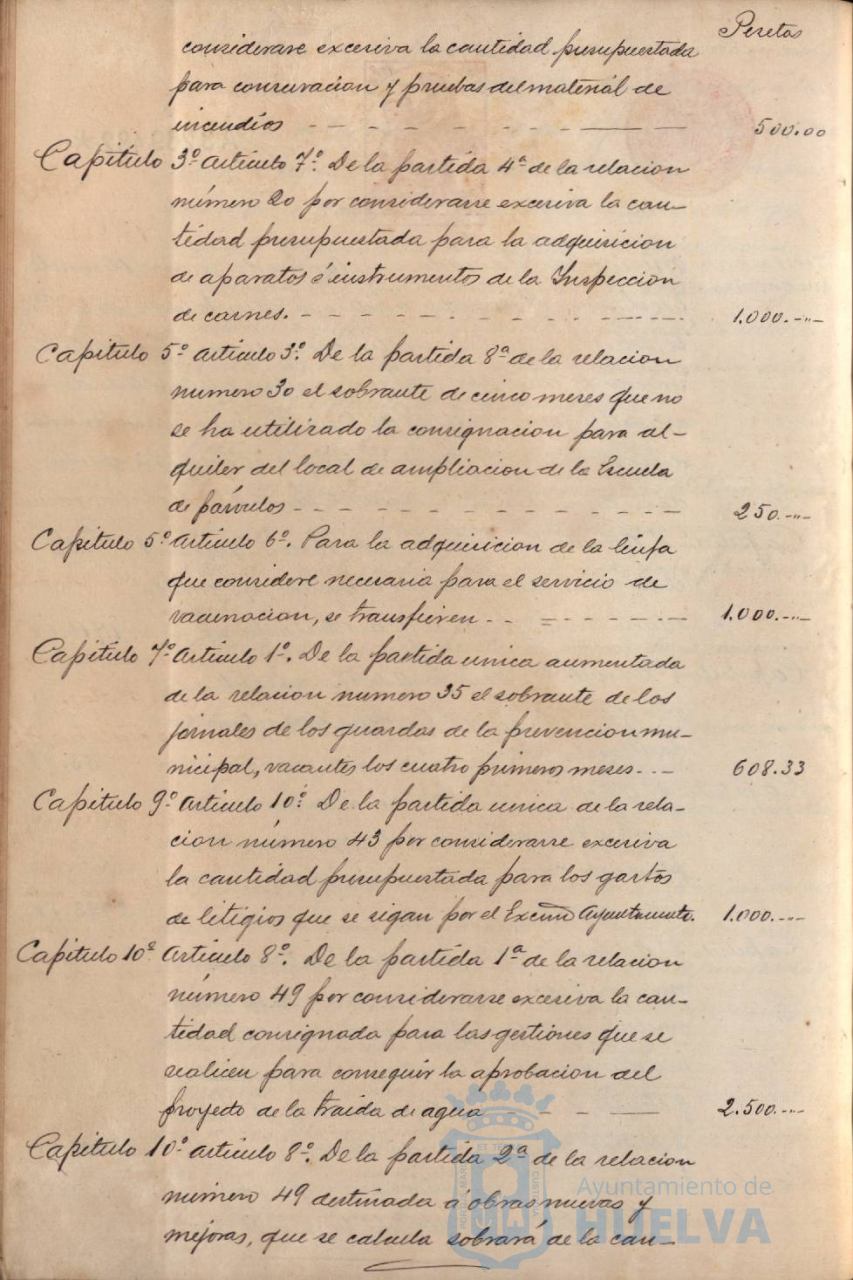 Pesetas
considerarse excesiva la cantidad presupuestada
para conservacion y pruebas del material de
incendios - - - - - - - - 500.00
Capitulo 3º articulo 7º. De la partida 4ª de la relacion
número 20 por considerarse excesiva la can-
tidad presupuestada para la adquisicion
de aparatos é instrumentos de la Inspeccion
de carnes. - - - - - - - - 1.000.-"-
Capitulo 5º articulo 3º. De la partida 8ª de la relacion
numero 30 el sobrante de cinco meses que no
se ha utilizado la consignacion para al-
quiler del local de ampliacion de la Escuela
de párvulos - - - - - - - - 250.-"-
Capitulo 5º articulo 6º. Para la adquisicion de la linfa
que considere necesaria para el servicio de
vacunacion, se transfieren - - - - - - 1.000.-"-
Capitulo 7º articulo 1º. De la partida unica aumentada
de la relacion numero 35 el sobrante de los
jornales de los guardas de la prevencion mu-
nicipal, vacantes los cuatro primeros meses. - - 608.33
Capitulo 9º articulo 10º. De la partida unica de la rela-
cion número 43 por considerarse excesiva
la cantidad presupuestada para los gastos
de litigios que se sigan por el Excmo Ayuntamiento. 1.000.-"-
Capitulo 10º articulo 8º. De la partida 1ª de la relacion
número 49 por considerarse excesiva la can-
tidad consignada para las gestiones que se
realicen para conseguir la aprobacion del
proyecto de la traida de agua - - - - 2.500.-"-
Capitulo 10º articulo 8º. De la partida 2ª de la relacion
número 49 destinada á obras nuevas y
mejoras, que se calcula sobrará de la can-
Ayuntamiento de
HUELVA